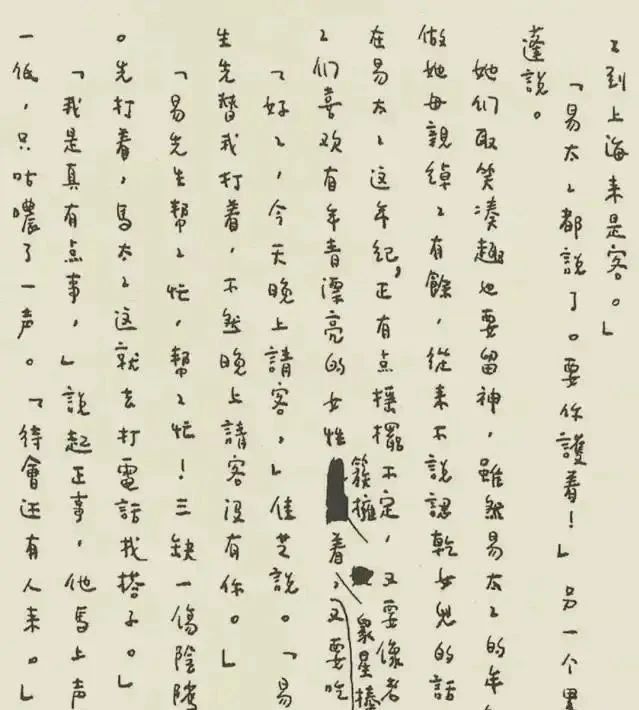 〻到上海来是客。」
「易太〻都說了。要你護着！」另一个黑
蓬說。
她们取笑凑趣也要留神，雖然易太〻的年
做她母親綽〻有餘，從来不說認乾女兒的話
在易太〻这年纪，正有点摇擺不定，又要像老
簇擁 眾星捧
〻们喜欢有年青漂亮的女性着，又要吃
「好〻，今天晚上請客，」佳芝說。「易
生先替我打着，不然晚上請客没有你。」
「易先生帮〻忙，幫〻忙！三缺一傷陰騭
。先打着，馬太〻这就去打電話找搭子。」
「我是真有点事，」說起正事，他馬上声
一低，只咕噥了一声。「待會还有人来。」